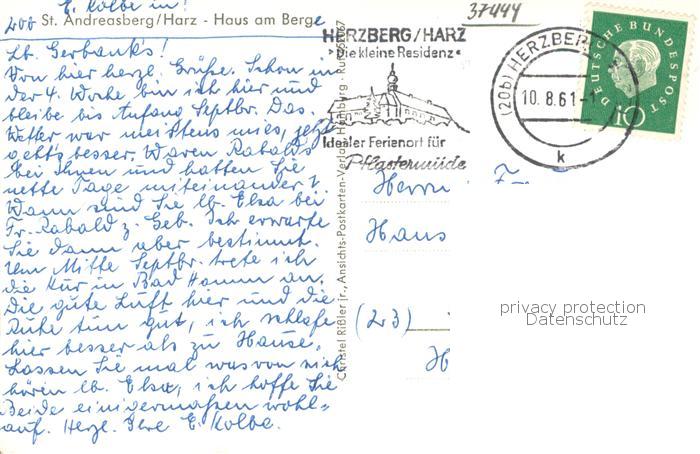 E. Kolbe in!
20b St. Andreasberg/Harz - Haus am Berge
Lb. Gerbank's!
Von hier herzl. Grüße. Schon in
der 4. Woche bin ich hier und
bleibe bis Anfang Septbr. Das
Wetter war meistens mies, jetzt
geht's besser. Waren Rabalds
bei Ihnen und hatten Sie
nette Tage miteinander?
Wann sind Sie lb. Elsa bei
Fr. Rabald z. Geb. Ich erwarte
Sie dann aber bestimmt.
Um Mitte Septbr. trete ich
die Kur in Bad Hamm an.
Die gute Luft hier und die
Ruhe tun gut, ich schlafe
hier besser als zu Hause.
Lassen Sie mal was von sich
hören lb. Elsa, ich hoffe Sie
Beide einigermaßen wohl-
auf. Herzl. Ihre E. Kolbe.
Christel Rißler jr., Ansichts-Postkarten-Verlag, Hamburg - Ruf
37444
HERZBERG/HARZ
"Die kleine Residenz"
Idealer Ferienort für
Pflastermüde
(20b) HERZBERG
10.8.61-1
k
DEUTSCHE BUNDESPOST
10
Herrn F
Hans
(23)
H
privacy protection
Datenschutz